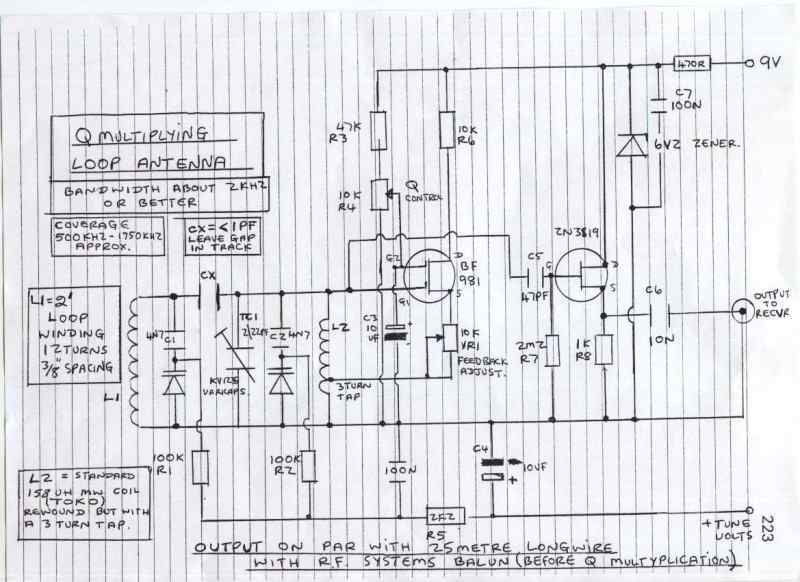 Q MULTIPLYING
LOOP ANTENNA
BANDWIDTH ABOUT 2KHZ
OR BETTER
COVERAGE
500KHZ - 1750KHZ
APPROX.
CX = <1PF
LEAVE GAP
IN TRACK
L1 = 2'
LOOP
WINDING
12 TURNS
3/8" SPACING
L1
4N7
C1
CX
TC1
2/22PF
C2
4N7
KV1235
VARICAPS.
L2
3 TURN
TAP
47K
R3
10K
R4
Q
CONTROL
10K
R6
G2
G1
D
BF
981
S
C3
10
UF
10K
VR1
FEEDBACK
ADJUST.
C5
47PF
2N3819
G
D
S
2M2
R7
1K
R8
C6
10N
470R
9V
C7
100N
6V2 ZENER.
OUTPUT
TO
RECVR
100K
R1
100K
R2
100N
C4
10UF
2K2
R5
+TUNE
VOLTS
223
L2 = STANDARD
158 UH MW COIL
(TOKO)
REWOUND BUT WITH
A 3 TURN TAP.
OUTPUT ON PAR WITH 25METRE LONGWIRE
WITH R.F. SYSTEMS BALUN (BEFORE Q MULTYPLICATION)